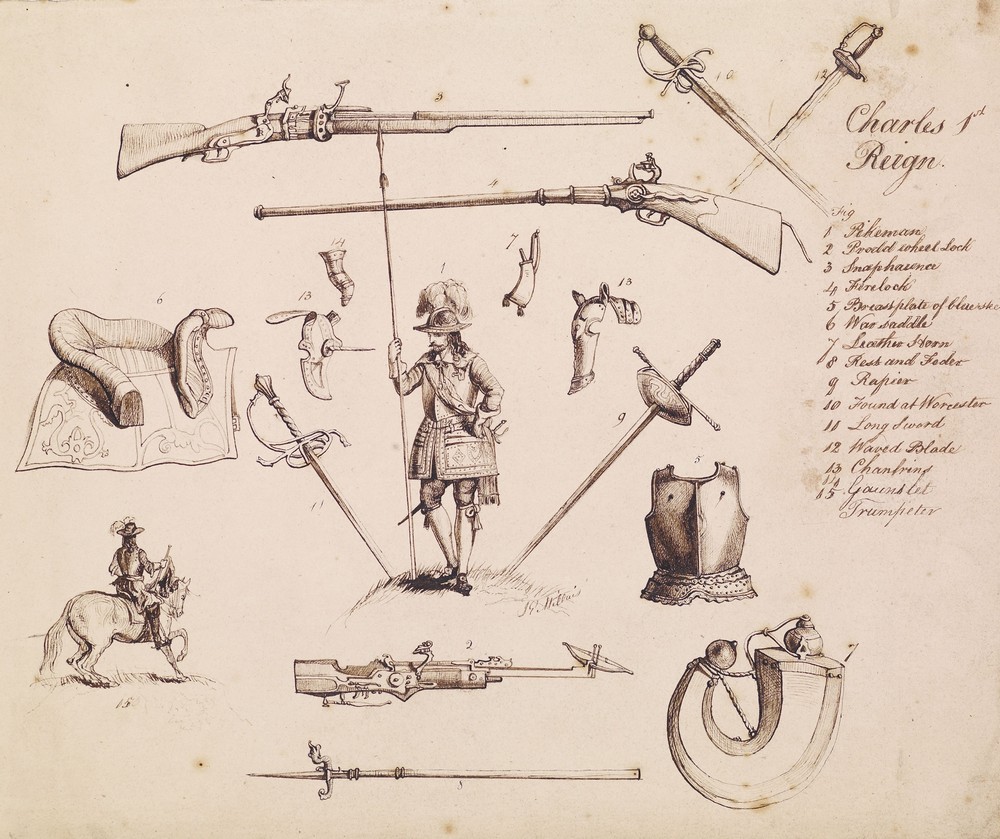 3
10
12
Charles 1st
Reign.
4
Fig
1 Pikeman
2 Prodd wheel Lock
3 Snaphaunce
4 Firelock
5 Breastplate of blue
6 War saddle
7 Leather Horn
8 Rest and Feder
9 Rapier
10 Found at Worcester
11 Long Sword
12 Waved Blade
13 Chanfrins
14
15 Gauntlet
Trumpeter
14
7
1
6
13
13
9
5
11
2
15
8